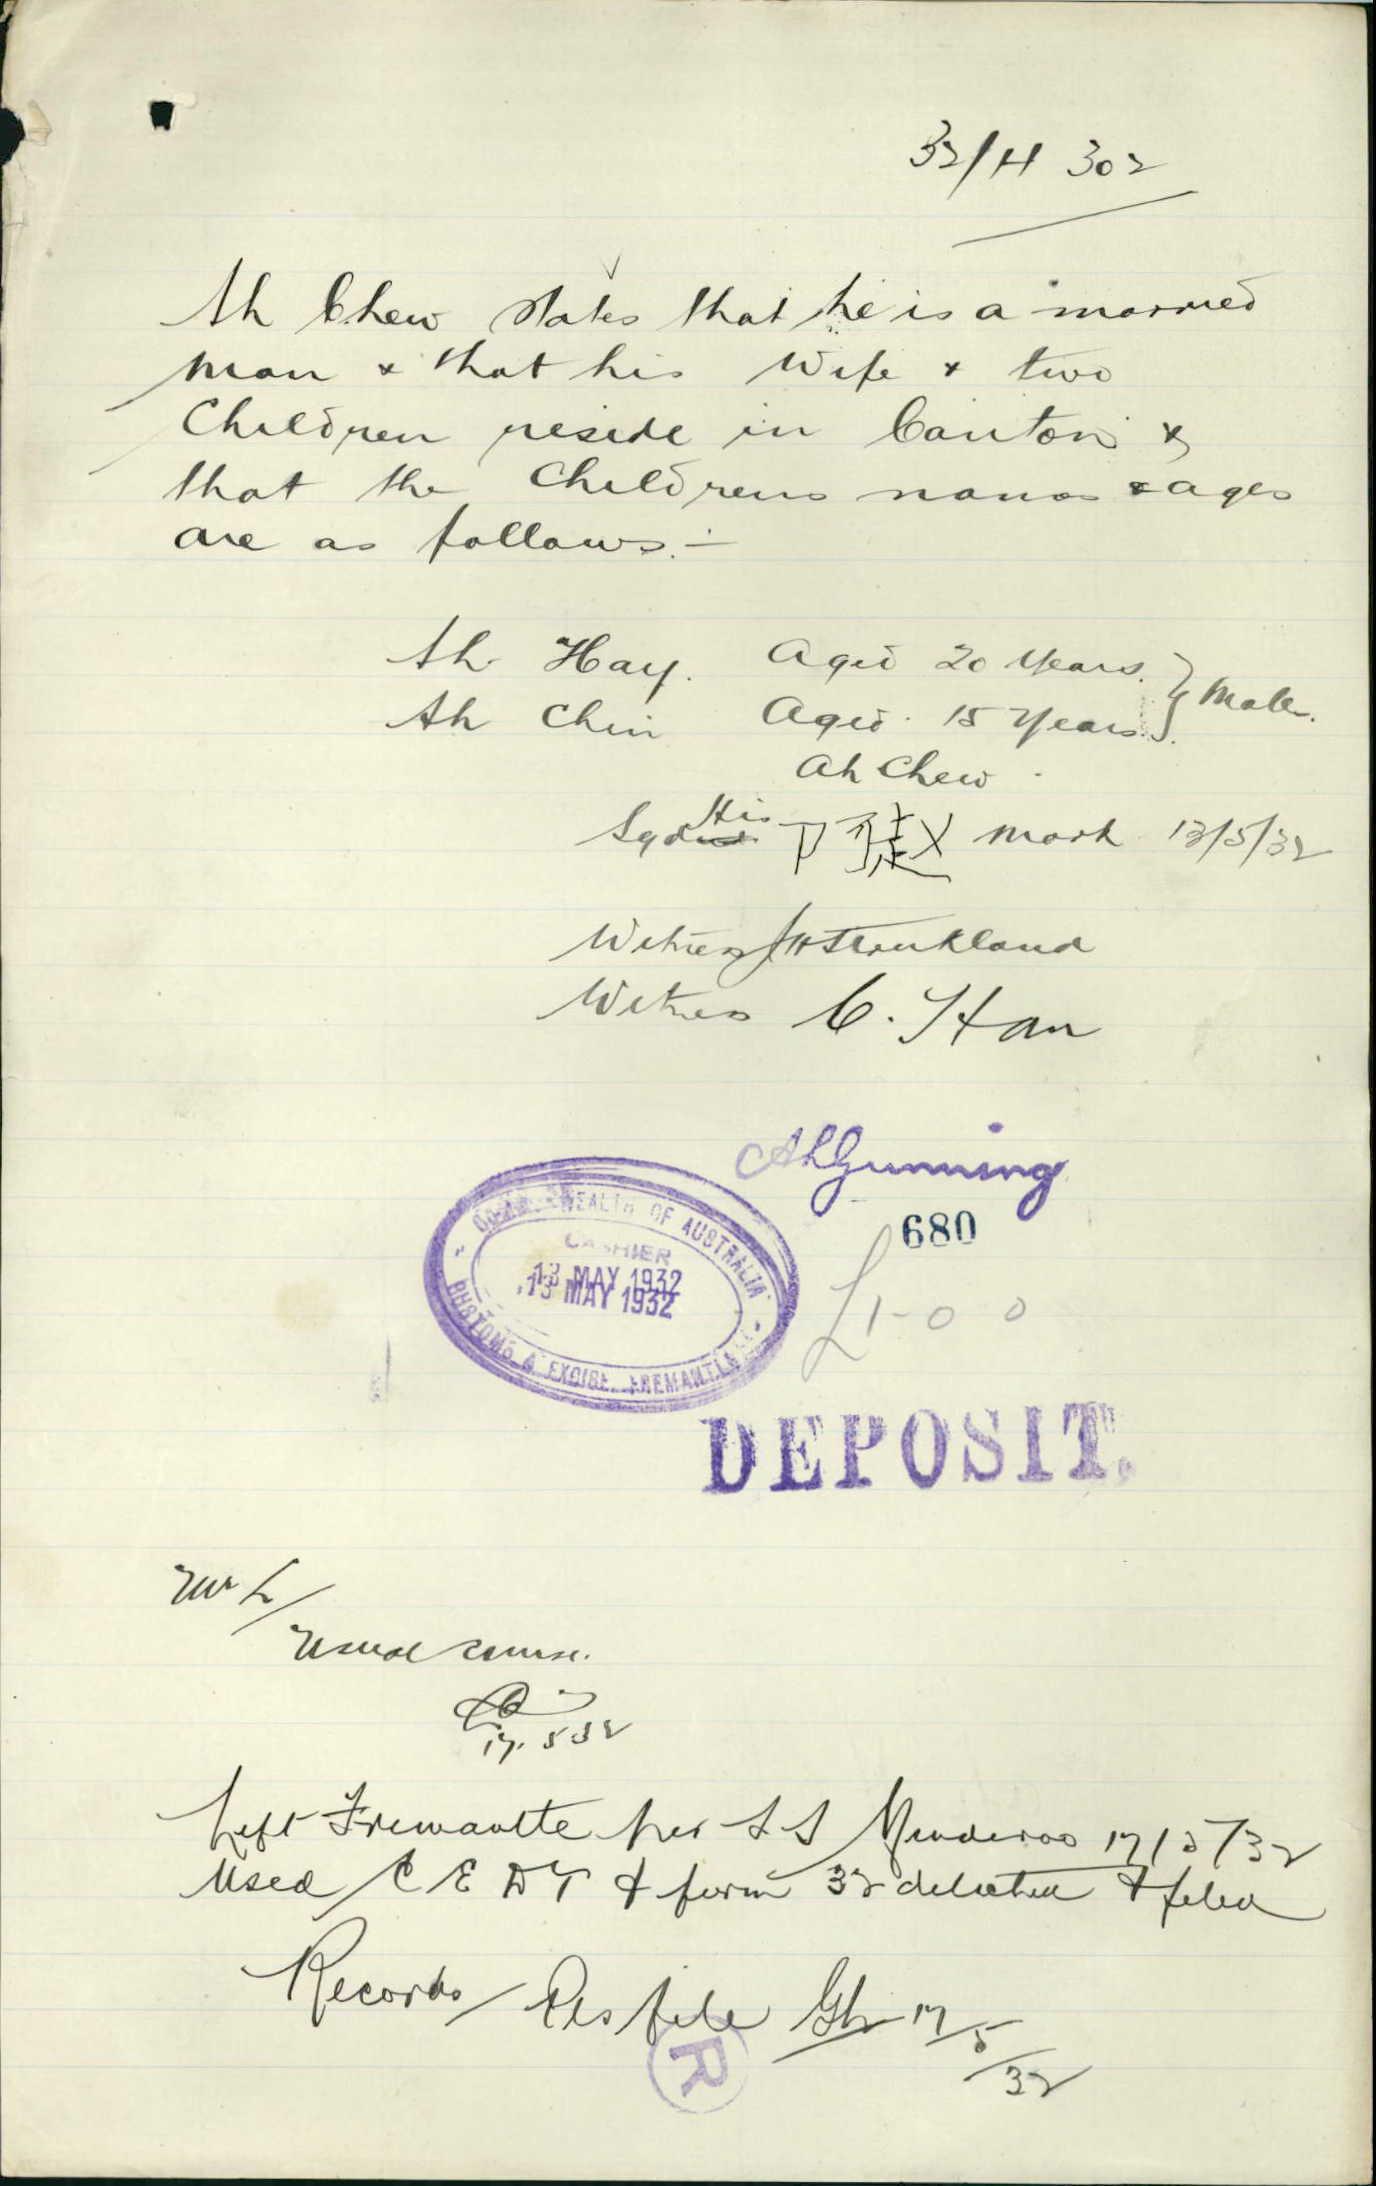 32/H 302
Ah Chew states that he is a married
man & that his wife & two
Children reside in Canton &
that the Childrens names & ages
are as follows:-
Ah Hay. Aged 20 Years.
Ah Chin Aged 15 Years. } Male.
Ah Chew.
Sgd His 阿趙 mark 13/5/32
Witness Strickland
Witness C. Han
AhGunning
680
£1-0 0
COMMONWEALTH OF AUSTRALIA
CASHIER
13 MAY 1932
13 MAY 1932
CUSTOMS & EXCISE, FREMANTLE
DEPOSIT.
Mr L/
Usual course.
17.5 32
Left Fremantle per S S Minderoo 17/5/32
Used C E D T & form 32 & filed
Records/ Pls file 17/5/32
R